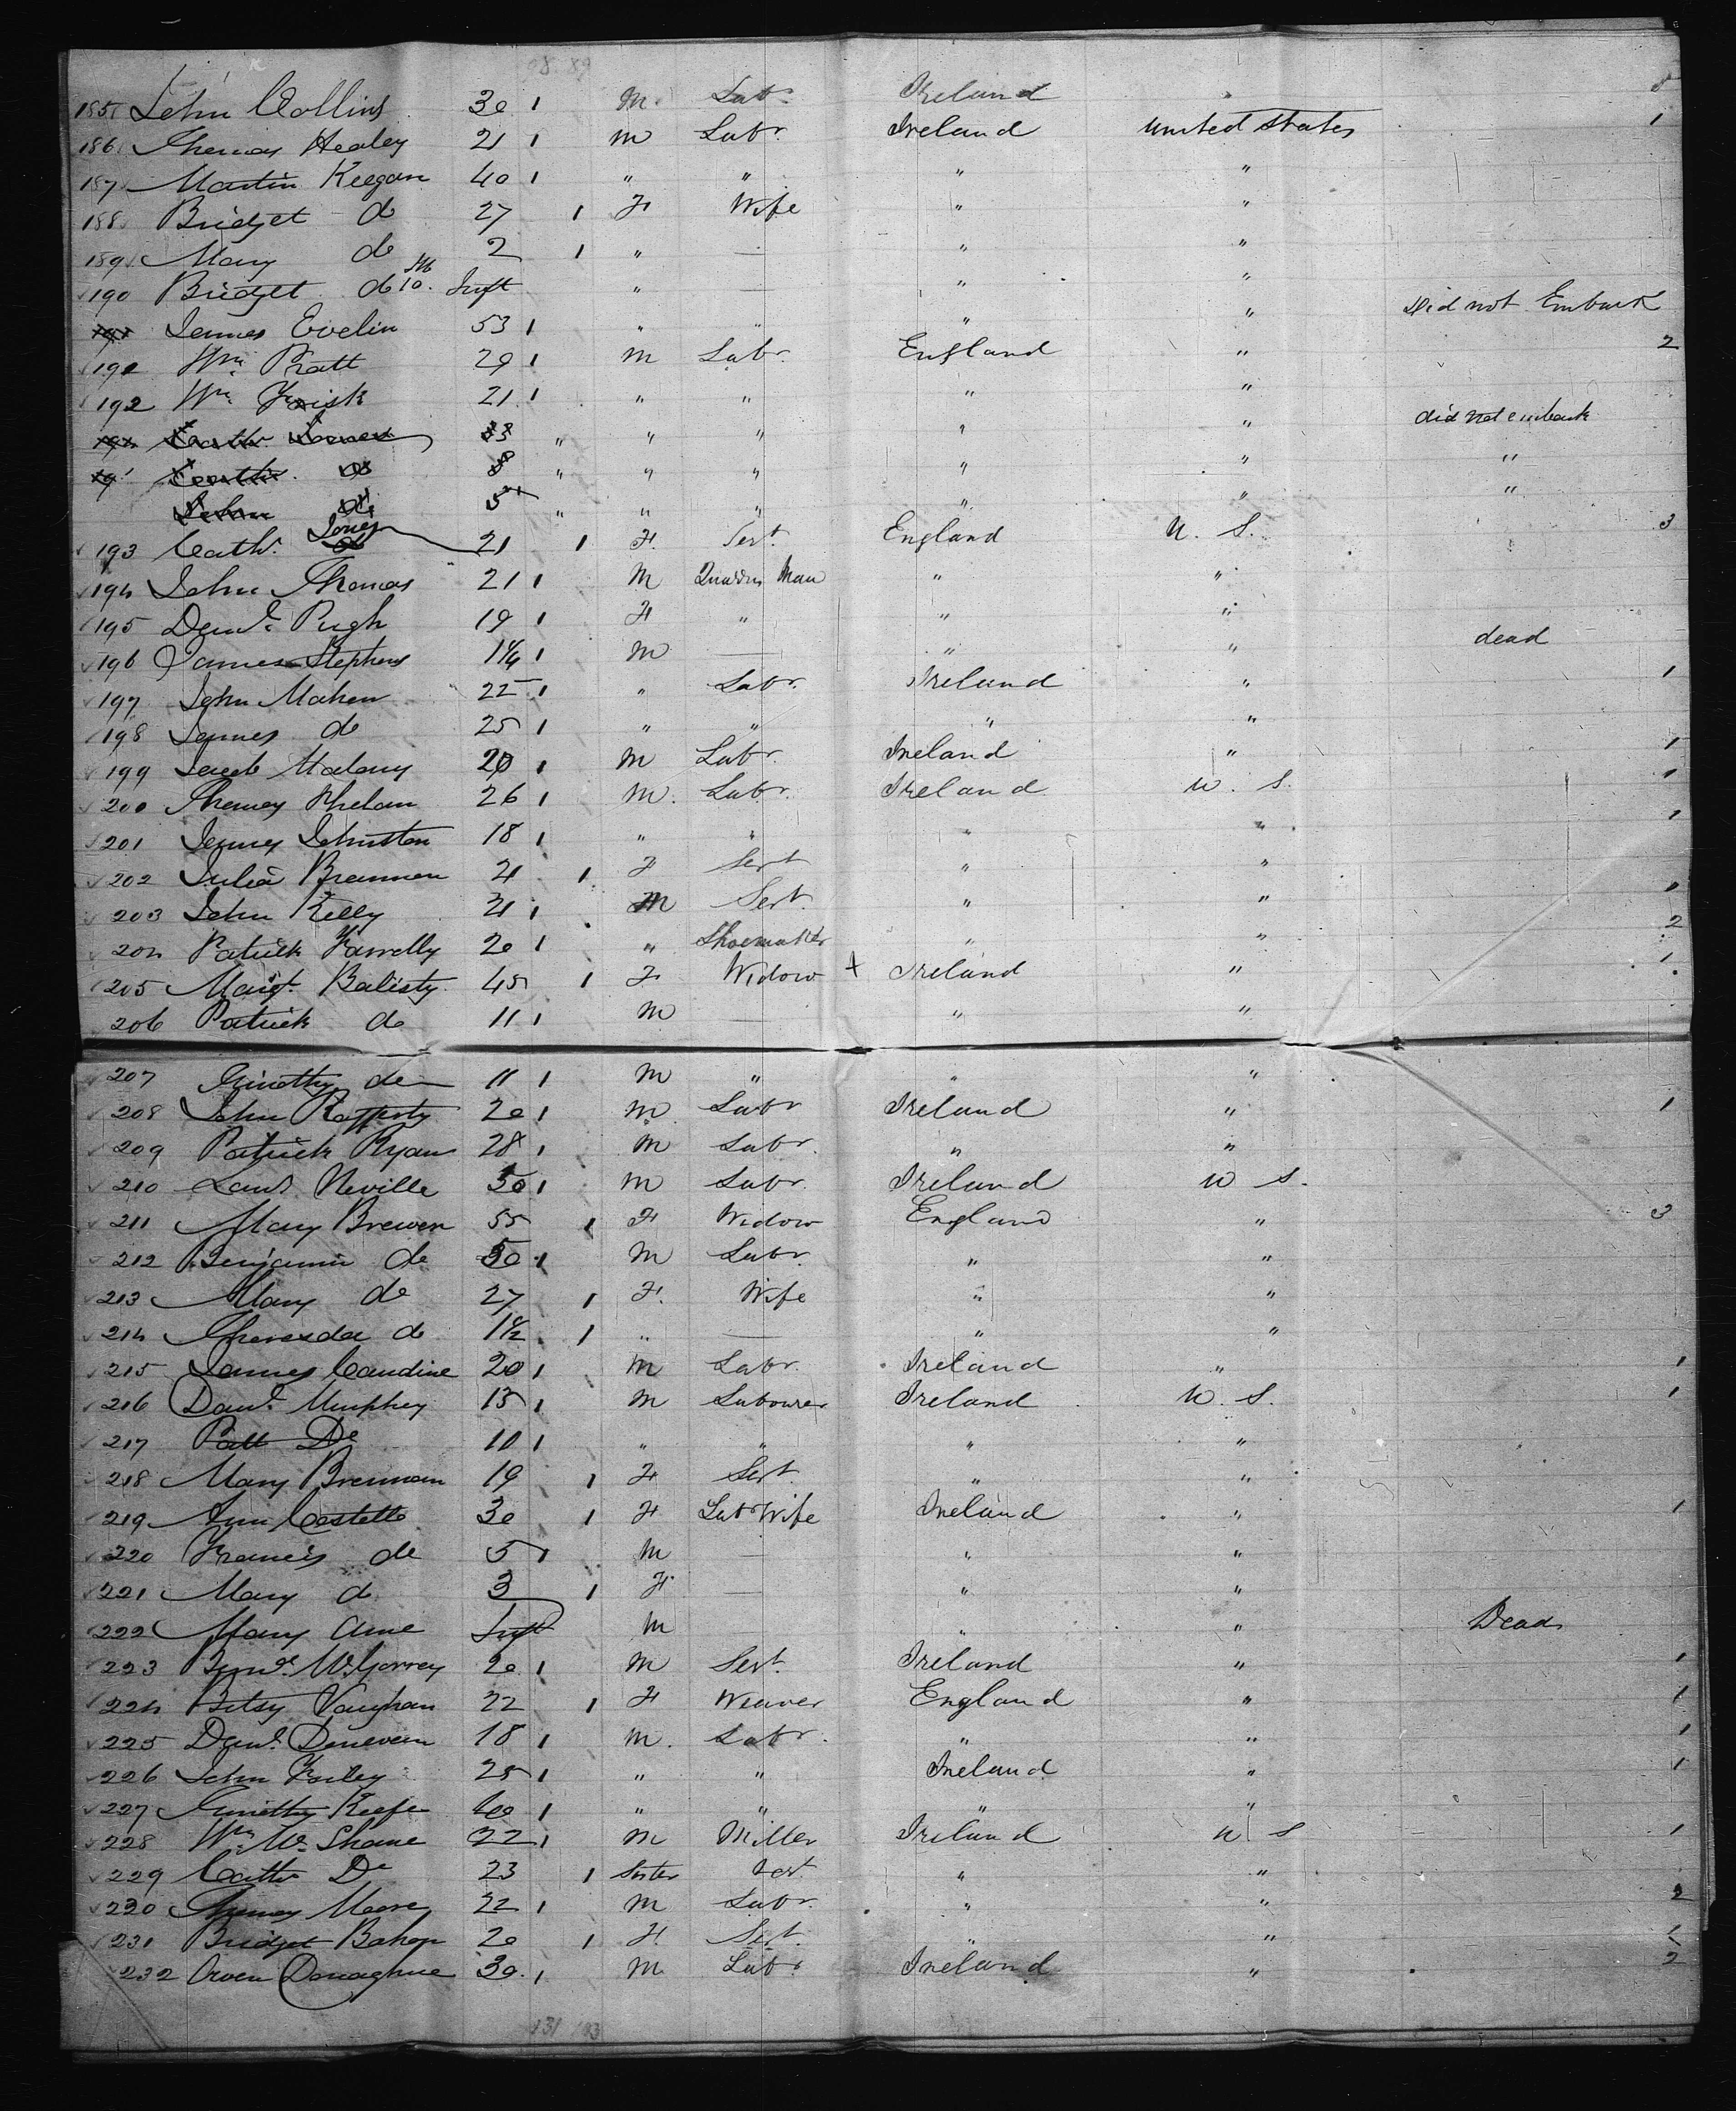 98 89
185 John Collins 30 1 M. Labr. Ireland
186 Thomas Healey 21 1 M Labr. Ireland United States 1
187 Martin Keegan 40 1 " " " "
188 Bridget do 27 1 F Wife " "
189 Mary do 2 1 " — " "
190 Bridget do 10 M Inft " — " "
191 James Evelin 53 1 " " " " Did not Embark
191 Wm. Pratt 20 1 M Labr. England " 2
192 Wm. Frisk 21 1 " " " "
Cath. James 33 " " " " " did not embark
do 8 " " " " " "
John do 5 " " " " " "
193 Cath. Jones 21 1 F. Sert. England U. S. 3
194 John Thomas 21 1 M Quarry Man " "
195 Danl. Pugh 19 1 F " " "
196 James Stephens 1¼ 1 M — " " dead
197 John Mahon 22 1 " Labr. Ireland " 1
198 James do 25 1 " " " "
199 Jacob Malony 20 1 M Labr. Ireland " 1
200 Thomas Phelan 26 1 M. Labr. Ireland U. S. 1
201 James Johnston 18 1 " " " " 1
202 Julia Brennen 21 1 F Sert " "
203 John Kelly 21 1 M Sert. " " 1
204 Patrick Farrelly 20 1 " Shoemaker " " 2
205 Margt. Balisty 45 1 F Widow + Ireland " 1
206 Patrick do 11 1 M — " "
207 Timothy do 11 1 M " " "
208 John Rafferty 20 1 M Labr Ireland " 1
209 Patrick Ryan 28 1 M Labr. " "
210 Laws Neville 30 1 M Labr. Ireland U S.
211 Mary Brewer 55 1 F Widow England " 3
212 Benjamin do 30 1 M Labr. " "
213 Mary do 27 1 F. Wife " "
214 Theresda do 1½ 1 " — " "
215 James Caudine 20 1 M Labr. Ireland " 1
216 Danl. Murphey 13 1 M Labourer Ireland U. S. 1
217 Patt Do 10 1 " " " "
218 Mary Brennan 19 1 F Sert " "
219 Ann Costello 30 1 F Labr Wife Ireland " 1
220 Francis do 5 1 M — " "
221 Mary do 3 1 F — " "
222 Mary Anne Inft M " " Dead
223 McGorrey 20 1 M Sert. Ireland " 1
224 Betsy Vaughan 22 1 F Weaver England " 1
225 Danl. 18 1 M. Labr. " " 1
226 John Farley 25 1 " " Ireland " 1
227 Timothy Keefe 40 1 " " " "
228 Wm. Mc Shane 22 1 M Miller Ireland U S 1
229 Cath Do 23 1 Sister Sert " "
230 Thomas Moore 22 1 M Labr. " " 2
231 Bridget Bohan 20 1 F. Sert. " "
232 Owen Donaghue 30. 1 M Labr. Ireland " 2
131 103